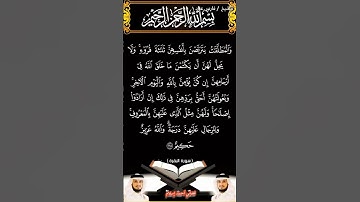 بسم الله الرحمن الرحيم
وَٱلْمُطَلَّقَٰتُ يَتَرَبَّصْنَ بِأَنفُسِهِنَّ ثَلَٰثَةَ قُرُوٓءٍ وَلَا
يَحِلُّ لَهُنَّ أَن يَكْتُمْنَ مَا خَلَقَ ٱللَّهُ فِىٓ
أَرْحَامِهِنَّ إِن كُنَّ يُؤْمِنَّ بِٱللَّهِ وَٱلْيَوْمِ ٱلْءَاخِرِ
وَبُعُولَتُهُنَّ أَحَقُّ بِرَدِّهِنَّ فِى ذَٰلِكَ إِنْ أَرَادُوٓا۟
إِصْلَٰحًا وَلَهُنَّ مِثْلُ ٱلَّذِى عَلَيْهِنَّ بِٱلْمَعْرُوفِ
وَلِلرِّجَالِ عَلَيْهِنَّ دَرَجَةٌ وَٱللَّهُ عَزِيزٌ
حَكِيمٌ
(سورة البقرة)